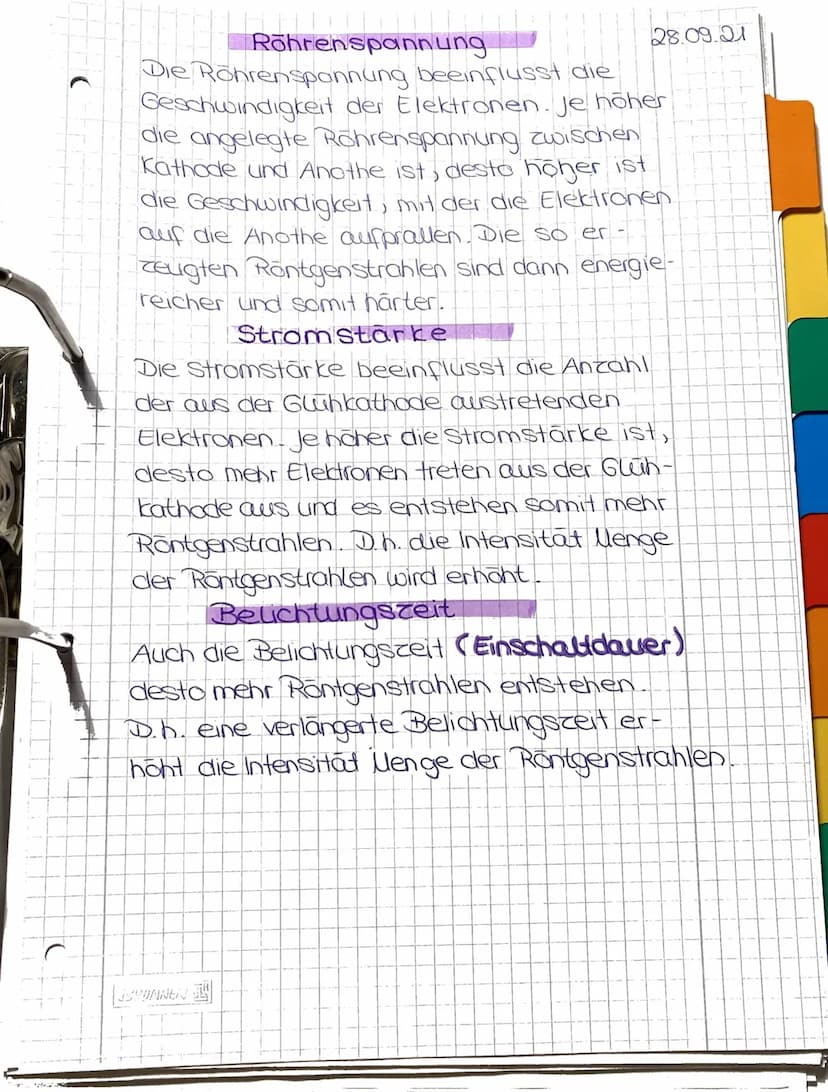 Röhrenspannung
28.09.21
Die Röhrenspannung beeinflusst die
Geschwindigkeit der Elektronen. Je höher
die angelegte Röhrenspannung zwischen
Kathode und Anothe ist, desto höher ist
die Geschwindigkeit, mit der die Elektronen
auf die Anothe aufprallen. Die so er-
zeugten Röntgenstrahlen sind dann energie-
reicher und somit härter.
Stromstärke
Die Stromstärke beeinflusst die Anzahl
der aus der Glühkathode austretenden
Elektronen. Je höher die Stromstärke ist,
desto mehr Elektronen treten aus der Glüh-
kathode aus und es entstehen somit mehr
Röntgenstrahlen. D.h. die Intensität Menge
der Röntgenstrahlen wird erhöht.
Belichtungszeit
Auch die Belichtungszeit (Einschaltdauer)
desto mehr Röntgenstrahlen entstehen.
D.h. eine verlängerte Belichtungszeit er-
höht die Intensität Menge der Röntgenstrahlen.